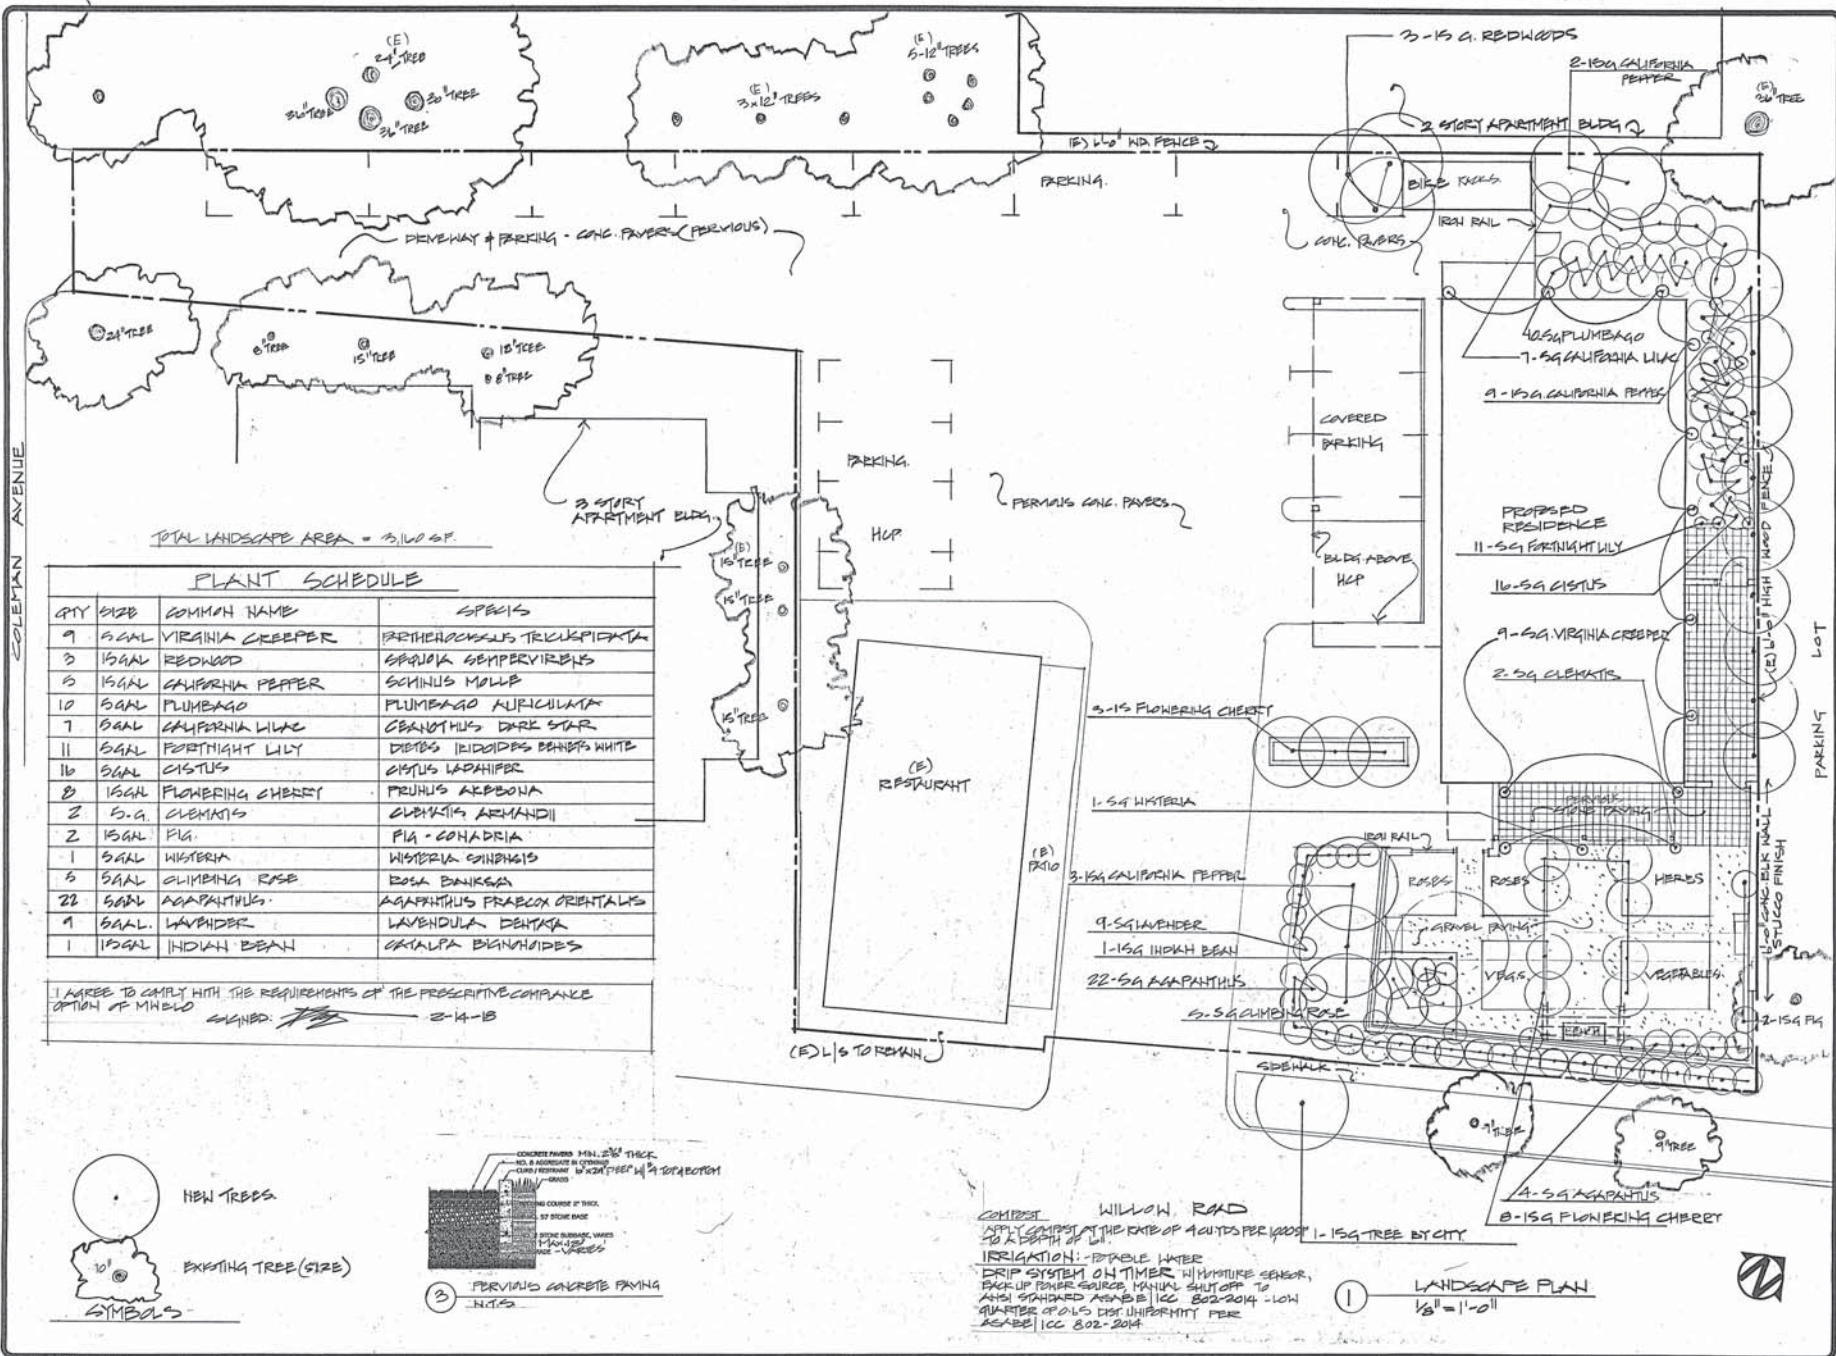 (E)
24" TREE
36" TREE
30" TREE
36" TREE
(E)
3x12" TREES
(E)
5-12" TREES
3-15 G. REDWOODS
2-15G. CALIFORNIA
PEPPER
(E)
36" TREE
2 STORY APARTMENT BLDG
(E) 6'-0" WD. FENCE
PARKING.
BIKE RACKS.
IRON RAIL
CONC. PAVERS
DRIVEWAY & PARKING - CONC. PAVERS (PERVIOUS)
24" TREE
8" TREE
15" TREE
18" TREE
8" TREE
10-5G PLUMBAGO
7-5G CALIFORNIA LILAC
9-15G. CALIFORNIA PEPPER
COVERED
PARKING
PARKING.
HCP
PERVIOUS CONC. PAVERS
3 STORY
APARTMENT BLDG.
PROPOSED
RESIDENCE
11-5G FORTNIGHT LILY
16-5G CISTUS
BLDG ABOVE
HCP
9-5G. VIRGINIA CREEPER
2-5G CLEMATIS
HIGH WOOD FENCE
PARKING LOT
COLEMAN AVENUE
TOTAL LANDSCAPE AREA = 3,160 SF.
PLANT SCHEDULE
QTY SIZE COMMON NAME SPECIS
9 5GAL VIRGINIA CREEPER PARTHENOCISSUS TRICUSPIDATA
3 15GAL REDWOOD SEQUOIA SEMPERVIRENS
5 15GAL CALIFORNIA PEPPER SCHINUS MOLLE
10 5GAL PLUMBAGO PLUMBAGO AURICULATA
7 5GAL CALIFORNIA LILAC CEANOTHUS DARK STAR
11 5GAL FORTNIGHT LILY DIETES IRIDOIDES WHITE
16 5GAL CISTUS CISTUS LADANIFER
8 15GAL FLOWERING CHERRY PRUNUS AKEBONA
2 5.G. CLEMATIS CLEMATIS ARMANDII
2 15GAL FIG. FIG - CONADRIA
1 5GAL WISTERIA WISTERIA SINENSIS
5 5GAL CLIMBING ROSE ROSA BANKSIA
22 5GAL AGAPANTHUS. AGAPANTHUS PRAECOX ORIENTALIS
9 5GAL. LAVENDER LAVENDULA DENTATA
1 15GAL INDIAN BEAN CATALPA BIGNONOIDES
I AGREE TO COMPLY WITH THE REQUIREMENTS OF THE PRESCRIPTIVE COMPLIANCE
OPTION OF MWELO
SIGNED: 2-14-18
(E)
15" TREE
15" TREE
15" TREE
(E)
RESTAURANT
(E)
PATIO
(E) L/S TO REMAIN
3-15 FLOWERING CHERRY
1-5G WISTERIA
IRON RAIL
PERVIOUS
STONE PAVING
3-15G CALIFORNIA PEPPER
9-5G LAVENDER
1-15G INDIAN BEAN
22-5G AGAPANTHUS
5-5G CLIMBING ROSE
ROSES
ROSES
HERBS
GRAVEL PAVING
VEGS.
VEGETABLES.
BENCH
6'-0" CONC. BLK WALL
STUCCO FINISH
2-15G FIG
SIDEWALK
9" TREE
4-5G AGAPANTUS
8-15G FLOWERING CHERRY
1-15G TREE BY CITY
NEW TREES.
10"
EXISTING TREE (SIZE)
SYMBOLS
CONCRETE PAVERS MIN. THICK
NO. 8 AGGREGATE IN OPENINGS
CURB / RESTRAINT
GRASS
COURSE 2" THICK,
57 STONE BASE
STONE SUBBASE, VARIES
- VARIES
3 PERVIOUS CONCRETE PAVING
N.T.S
WILLOW ROAD
COMPOST
APPLY COMPOST AT THE RATE OF 4 CU YDS PER 1000SF
TO A DEPTH OF 6"
IRRIGATION: - POTABLE WATER
DRIP SYSTEM ON TIMER W/ MOISTURE SENSOR,
BACK UP POWER SOURCE, MANUAL SHUT OFF TO
ANSI STANDARD ASABE/ICC 802-2014 - LOW
QUARTER OF 0.65 DIST. UNIFORMITY PER
ASABE/ICC 802-2014
1 LANDSCAPE PLAN
1/8" = 1'-0"